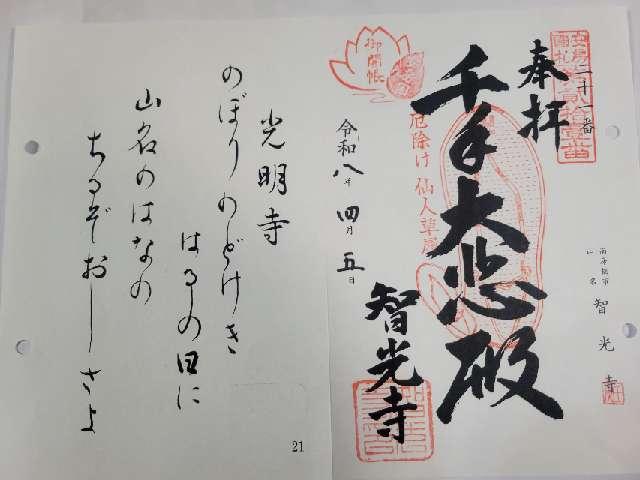 奉拝
二十一番
千手大悲殿
厄除け 仙人草履
御開帳
令和八年 四月 五日
智光寺
山名
智光寺
光明寺
のぼりのどけき
はるしの田に
山名のはなの
ちるぞおしさよ
21